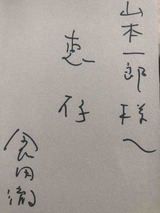 山本一郎様へ
恵存
倉田徹